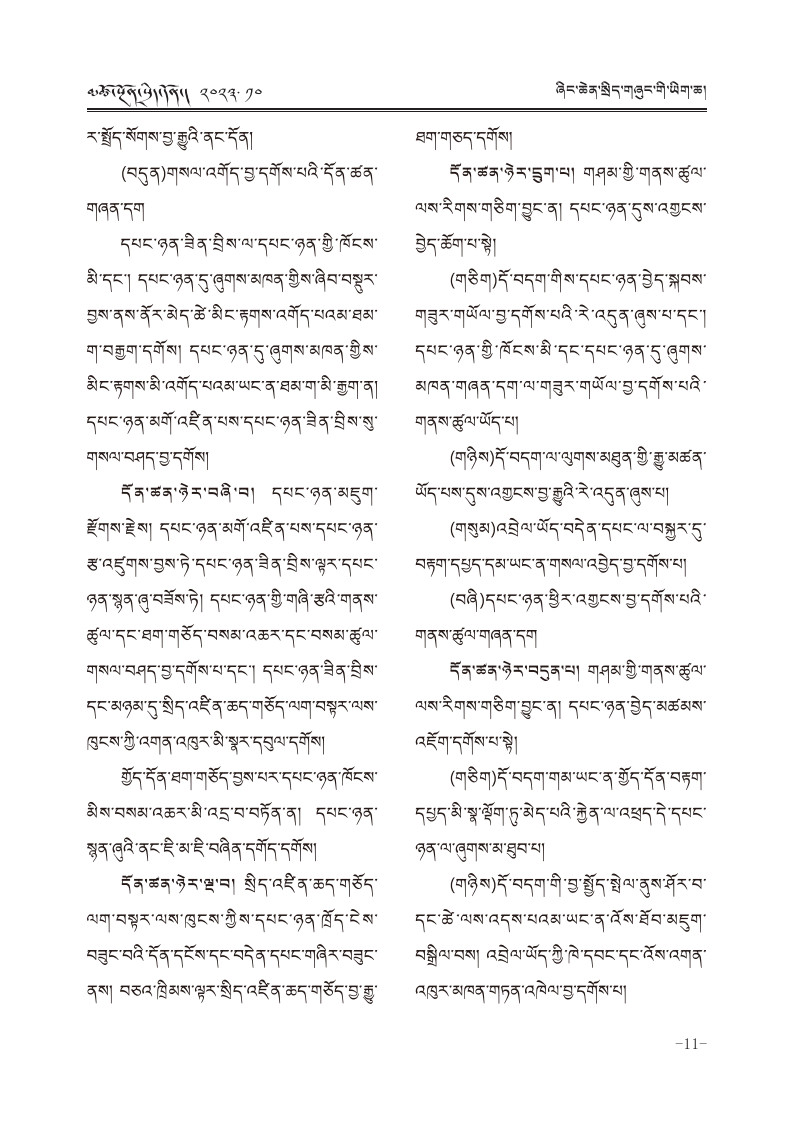 མཚོ་སྔོན་སྲིད་གཞུང་། ༢༠༢༣.༡༠
ཞིང་ཆེན་སྲིད་གཞུང་གི་ཡིག་ཆ།
ར་སྤྲོད་སོགས་བྱ་རྒྱུའི་ནང་དོན།
(བདུན)གསལ་འགོད་བྱ་དགོས་པའི་དོན་ཚན་
གཞན་དག
དཔང་ཉན་ཟིན་བྲིས་ལ་དཔང་ཉན་གྱི་ཁོངས་
མི་དང་། དཔང་ཉན་དུ་ཞུགས་མཁན་གྱིས་ཞིབ་བསྡུར་
བྱས་ནས་ནོར་མེད་ཚེ་མིང་རྟགས་འགོད་པའམ་ཐམ་
ག་བརྒྱག་དགོས། དཔང་ཉན་དུ་ཞུགས་མཁན་གྱིས་
མིང་རྟགས་མི་འགོད་པའམ་ཡང་ན་ཐམ་ག་མི་རྒྱག་ན།
དཔང་ཉན་མགོ་འཛིན་པས་དཔང་ཉན་ཟིན་བྲིས་སུ་
གསལ་བཤད་བྱ་དགོས།
དོན་ཚན་ཉེར་བཞི་བ། དཔང་ཉན་མཇུག་
རྫོགས་རྗེས། དཔང་ཉན་མགོ་འཛིན་པས་དཔང་ཉན་
རྩ་འཛུགས་བྱས་ཏེ་དཔང་ཉན་ཟིན་བྲིས་ལྟར་དཔང་
ཉན་སྙན་ཞུ་བཟོས་ཏེ། དཔང་ཉན་གྱི་གཞི་རྩའི་གནས་
ཚུལ་དང་ཐག་གཅོད་བསམ་འཆར་དང་བསམ་ཚུལ་
གསལ་བཤད་བྱ་དགོས་པ་དང་། དཔང་ཉན་ཟིན་བྲིས་
དང་མཉམ་དུ་སྲིད་འཛིན་ཆད་གཅོད་ལག་བསྟར་ལས་
ཁུངས་ཀྱི་འགན་འཁུར་མི་སྣར་དབུལ་དགོས།
གྱོད་དོན་ཐག་གཅོད་བྱས་པར་དཔང་ཉན་ཁོངས་
མིས་བསམ་འཆར་མི་འདྲ་བ་བཏོན་ན། དཔང་ཉན་
སྙན་ཞུའི་ནང་ཇི་མ་ཇི་བཞིན་དགོད་དགོས།
དོན་ཚན་ཉེར་ལྔ་བ། སྲིད་འཛིན་ཆད་གཅོད་
ལག་བསྟར་ལས་ཁུངས་ཀྱིས་དཔང་ཉན་ཁྲོད་ངེས་
བཟུང་བའི་དོན་དངོས་དང་བདེན་དཔང་གཞིར་བཟུང་
ནས། བཅའ་ཁྲིམས་ལྟར་སྲིད་འཛིན་ཆད་གཅོད་བྱ་རྒྱུ་
ཐག་གཅད་དགོས།
དོན་ཚན་ཉེར་དྲུག་པ། གཤམ་གྱི་གནས་ཚུལ་
ལས་རིགས་གཅིག་བྱུང་ན། དཔང་ཉན་དུས་འགྱངས་
བྱེད་ཆོག་པ་སྟེ།
(གཅིག)དོ་བདག་གིས་དཔང་ཉན་བྱེད་སྐབས་
གཟུར་གཡོལ་བྱ་དགོས་པའི་རེ་འདུན་ཞུས་པ་དང་།
དཔང་ཉན་གྱི་ཁོངས་མི་དང་དཔང་ཉན་དུ་ཞུགས་
མཁན་གཞན་དག་ལ་གཟུར་གཡོལ་བྱ་དགོས་པའི་
གནས་ཚུལ་ཡོད་པ།
(གཉིས)དོ་བདག་ལ་ལུགས་མཐུན་གྱི་རྒྱུ་མཚན་
ཡོད་པས་དུས་འགྱངས་བྱ་རྒྱུའི་རེ་འདུན་ཞུས་པ།
(གསུམ)འབྲེལ་ཡོད་བདེན་དཔང་ལ་བསྐྱར་དུ་
བརྟག་དཔྱད་དམ་ཡང་ན་གསལ་འབྱེད་བྱ་དགོས་པ།
(བཞི)དཔང་ཉན་ཕྱིར་འགྱངས་བྱ་དགོས་པའི་
གནས་ཚུལ་གཞན་དག
དོན་ཚན་ཉེར་བདུན་པ། གཤམ་གྱི་གནས་ཚུལ་
ལས་རིགས་གཅིག་བྱུང་ན། དཔང་ཉན་བྱེད་མཚམས་
འཇོག་དགོས་པ་སྟེ།
(གཅིག)དོ་བདག་གམ་ཡང་ན་གྱོད་དོན་བརྟག་
དཔྱད་མི་སྣ་ལྡོག་ཏུ་མེད་པའི་རྐྱེན་ལ་འཕྲད་དེ་དཔང་
ཉན་ལ་ཞུགས་མ་ཐུབ་པ།
(གཉིས)དོ་བདག་གི་བྱ་སྤྱོད་སྤེལ་ནུས་ཤོར་བ་
དང་ཚེ་ལས་འདས་པའམ་ཡང་ན་འོས་ཐོབ་མཇུག་
བསྒྲིལ་བས། འབྲེལ་ཡོད་ཀྱི་ཁེ་དབང་དང་འོས་འགན་
འཁུར་མཁན་གཏན་འཁེལ་བྱ་དགོས་པ།
-11-